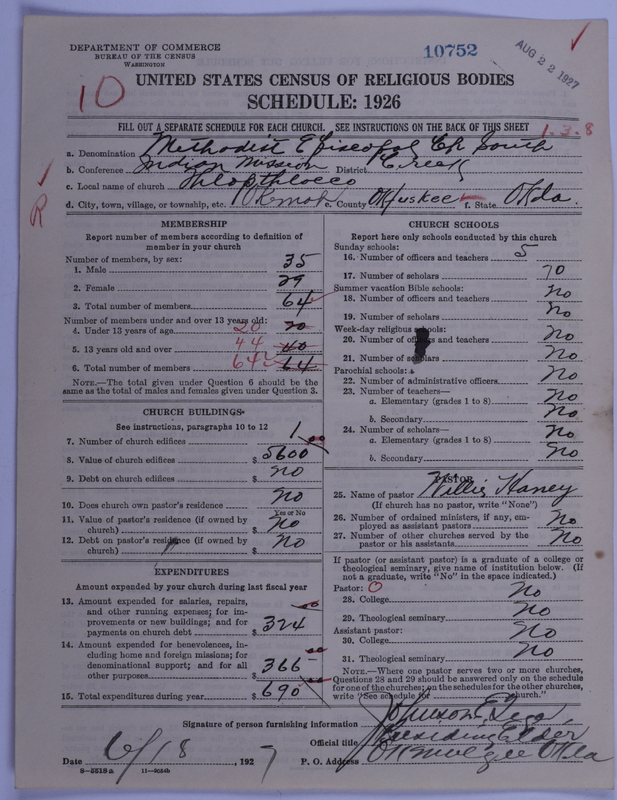 DEPARTMENT OF COMMERCE
BUREAU OF THE CENSUS
WASHINGTON
10752
AUG 22 1927
10
UNITED STATES CENSUS OF RELIGIOUS BODIES
SCHEDULE: 1926
FILL OUT A SEPARATE SCHEDULE FOR EACH CHURCH. SEE INSTRUCTIONS ON THE BACK OF THIS SHEET
1-3-8
a. Denomination Methodist Episcopal Ch South
b. Conference Indian Mission District Creek
c. Local name of church Thlopthlocco
d. City, town, village, or township, etc. Okemah e. County Okfuskee f. State Okla.
R
MEMBERSHIP
Report number of members according to definition of
member in your church
Number of members, by sex:
1. Male 35
2. Female 29
3. Total number of members 64
Number of members under and over 13 years old:
4. Under 13 years of age 20 20
5. 13 years old and over 44 40
6. Total number of members 64 64
NOTE.—The total given under Question 6 should be the
same as the total of males and females given under Question 3.
CHURCH BUILDINGS
See instructions, paragraphs 10 to 12
7. Number of church edifices 1
8. Value of church edifices $ 5600 00
9. Debt on church edifices $ No
10. Does church own pastor's residence No
Yes or No
11. Value of pastor's residence (if owned by
church) $ No
12. Debt on pastor's residence (if owned by
church) $ No
EXPENDITURES
Amount expended by your church during last fiscal year
13. Amount expended for salaries, repairs,
and other running expenses; for im-
provements or new buildings; and for
payments on church debt $ 324 00
14. Amount expended for benevolences, in-
cluding home and foreign missions; for
denominational support; and for all
other purposes $ 366 00
15. Total expenditures during year $ 690 00
CHURCH SCHOOLS
Report here only schools conducted by this church
Sunday schools:
16. Number of officers and teachers 5
17. Number of scholars 70
Summer vacation Bible schools:
18. Number of officers and teachers No
19. Number of scholars No
Week-day religious schools:
20. Number of officers and teachers No
21. Number of scholars No
Parochial schools:
22. Number of administrative officers No
23. Number of teachers—
a. Elementary (grades 1 to 8) No
b. Secondary No
24. Number of scholars—
a. Elementary (grades 1 to 8) No
b. Secondary No
PASTOR
25. Name of pastor Willis Haney
(If church has no pastor, write "None")
26. Number of ordained ministers, if any, em-
ployed as assistant pastors No
27. Number of other churches served by the
pastor or his assistants No
If pastor (or assistant pastor) is a graduate of a college or
theological seminary, give name of institution below. (If
not a graduate, write "No" in the space indicated.)
Pastor: 0
28. College No
29. Theological seminary No
Assistant pastor:
30. College No
31. Theological seminary No
NOTE.—Where one pastor serves two or more churches,
Questions 28 and 29 should be answered only on the schedule
for one of the churches; on the schedules for the other churches,
write "See schedule for church."
Signature of person furnishing information Johnson E. Tiger,
Official title Presiding Elder
Date 6/18, 1927 P. O. Address Okmulgee Okla
8—5518 a